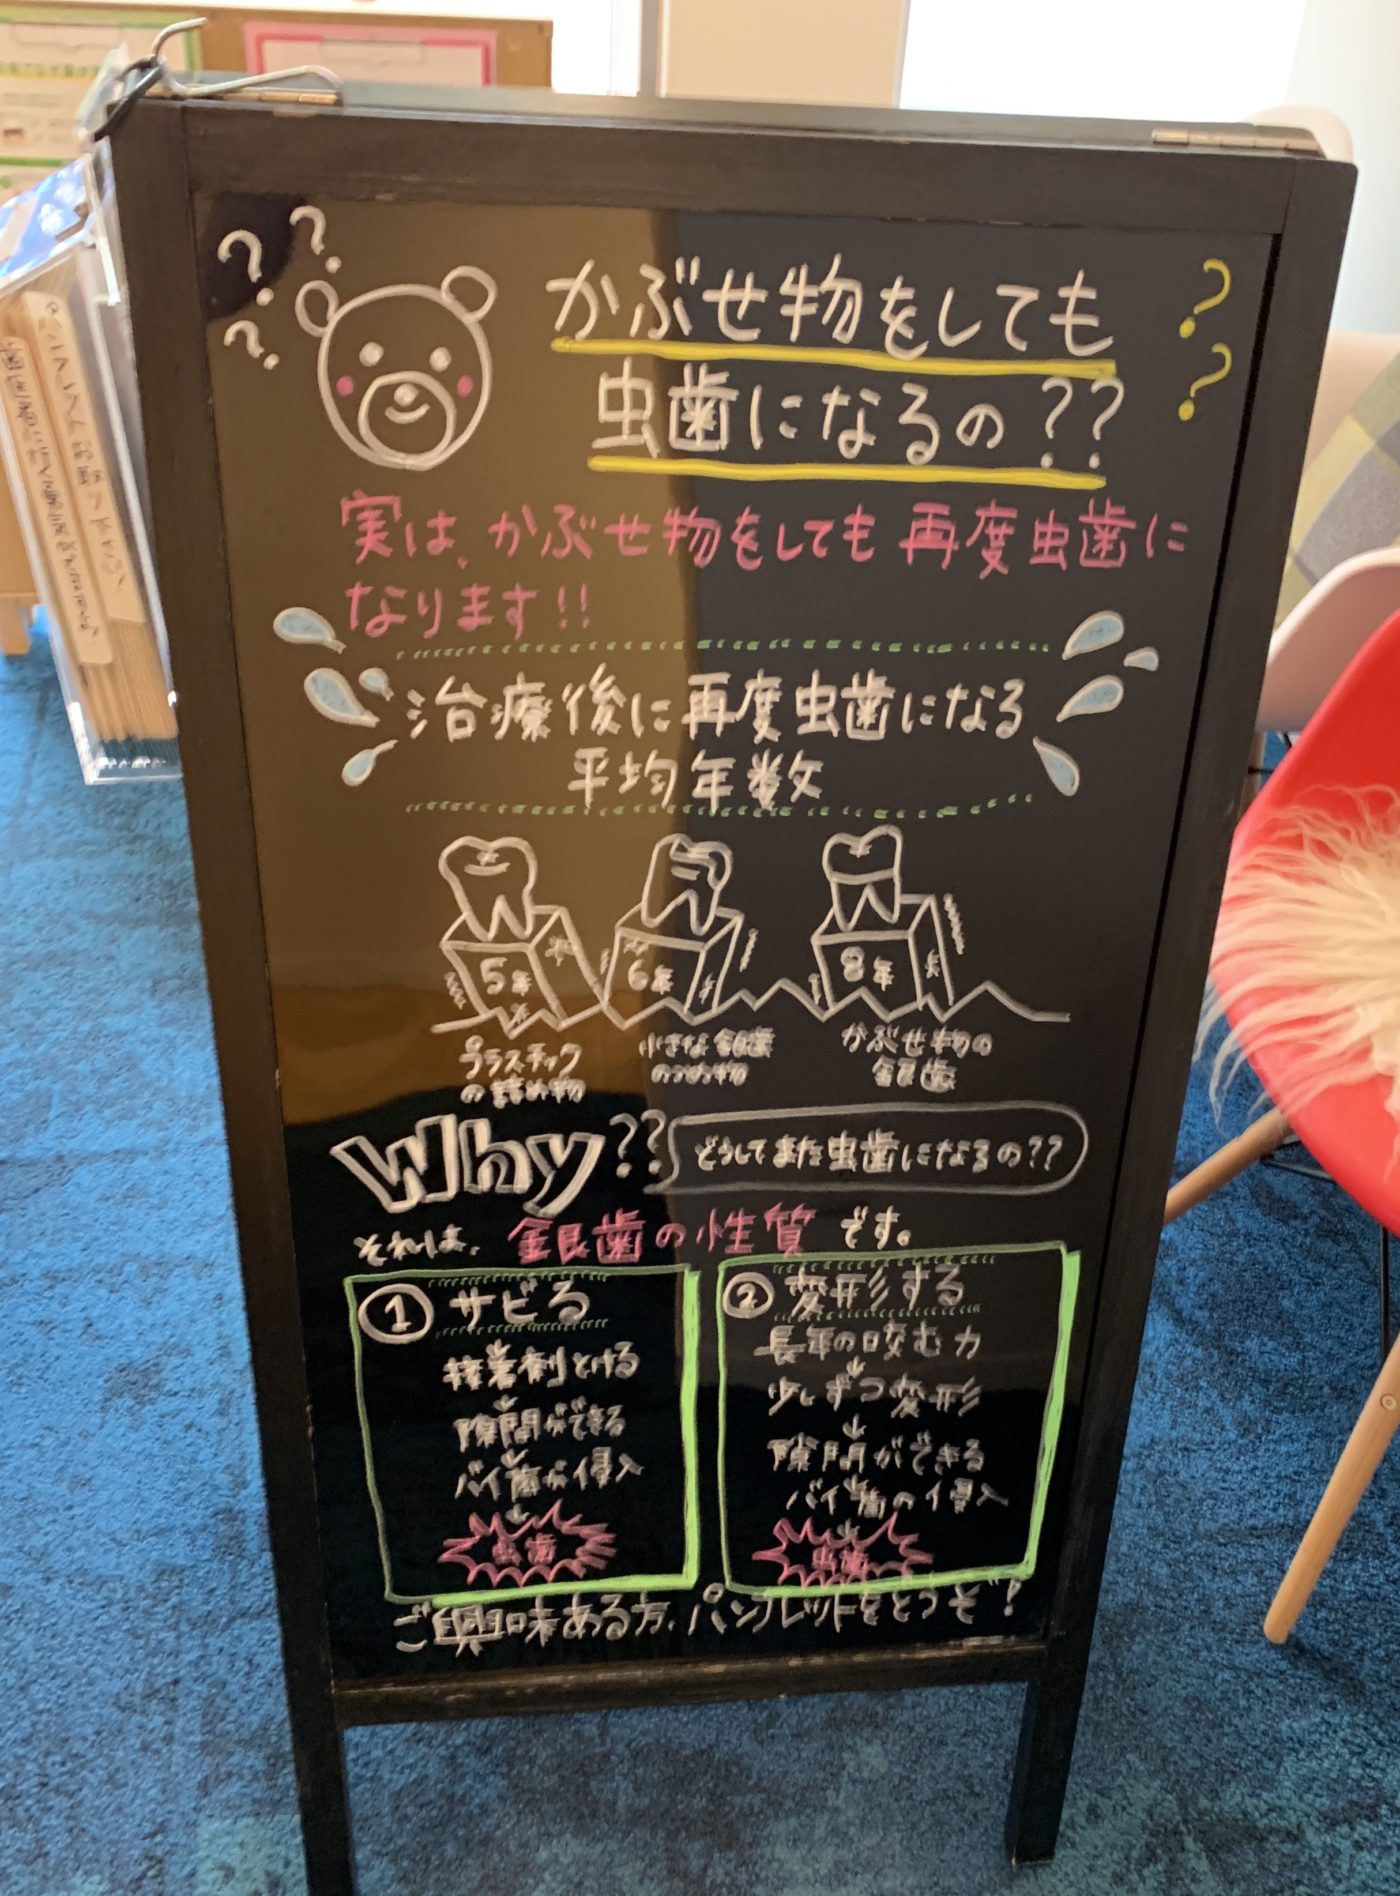 かぶせ物をしても
虫歯になるの??
実は、かぶせ物をしても再度虫歯に
なります!!
治療後に再度虫歯になる
平均年数
5年
6年
8年
プラスチック
の詰め物
小さな銀歯
のつめ物
かぶせ物の
銀歯
Why??
どうしてまた虫歯になるの??
それは、銀歯の性質です。
① サビる
接着剤とける
↓
隙間ができる
↓
バイ菌が侵入
↓
虫歯
② 変形する
長年の咬む力
↓
少しずつ変形
↓
隙間ができる
↓
バイ菌の侵入
↓
虫歯
ご興味ある方、パンフレットをどうぞ!